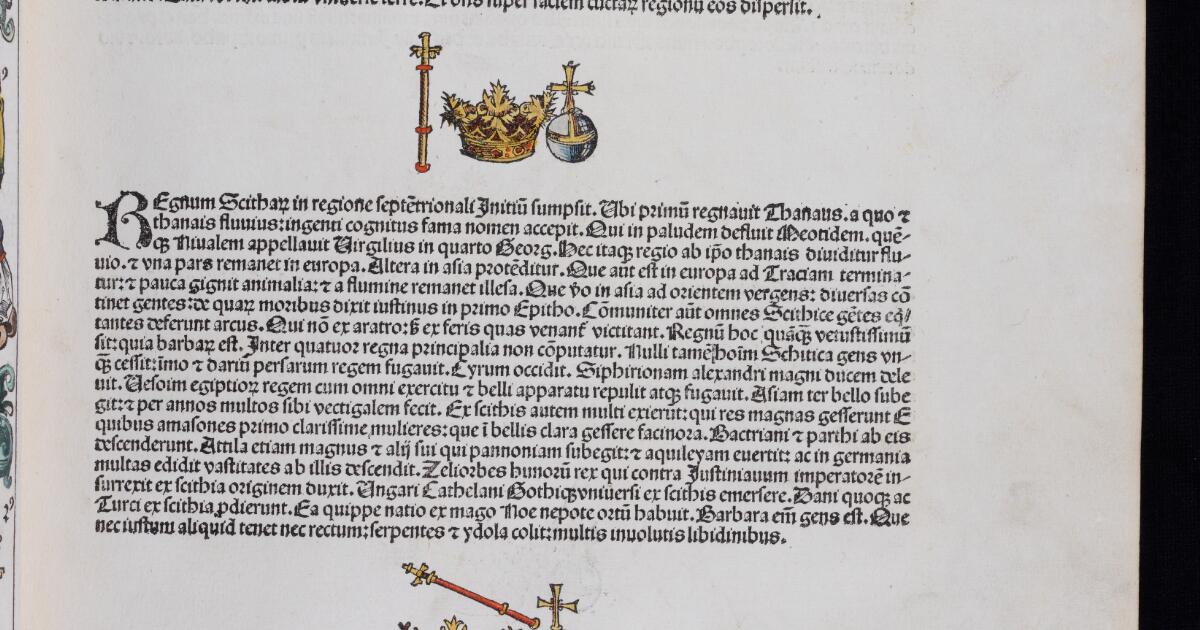 terre. Et dns super faciem cuctaꝝ regionū eos dispersit.
REgnum Scithaꝝ in regione septētrionali Initiū sumpsit. Ubi primū regnauit Thanaus. a quo ⁊
thanais fluuius: ingenti cognitus fama nomen accepit. Qui in paludem defluit Meotidem. quē-
qꝫ Niualem appellauit Uirgilius in quarto Georg. Hec itaqꝫ regio ab ip̄o thanais diuiditur flu-
uio. ⁊ vna pars remanet in europa. Altera in asia protēditur. Que aut est in europa ad Traciam termina-
tur: ⁊ pauca gignit animalia: ⁊ a flumine remanet illesa. Que v̄o in asia ad orientem vergens: diuersas cō
tinet gentes: de quaꝝ moribus dixit iustinus in primo Epitho. Cōmuniter aūt omnes Scithice gētes eq̄/
tantes deferunt arcus. Qui nō ex aratro: sꝫ ex feris quas venant᷑ victitant. Regnū hoc quāqꝫ vetustissimū
sit: quia barbaꝝ est. Inter quatuor regna principalia non cōputatur. Nulli tamē hoīm Schitica gens vn-
qꝫ cessit: imo ⁊ dariū persarum regem fugauit. Cyrum occidit. Siphirionam alexandri magni ducem dele
uit. Uesoim egiptioꝝ regem cum omni exercitu ⁊ belli apparatu repulit atqꝫ fugauit. Asiam ter bello sube
git: ⁊ per annos multos sibi vectigalem fecit. Ex scithis autem multi exierūt: qui res magnas gesserunt E
quibus amasones primo clarissime mulieres: que ī bellis clara gessere facinora. Bactriani ⁊ parthi ab eis
descenderunt. Attila etiam magnus ⁊ alij sui qui pannoniam subegit: ⁊ aquileyam euertit: ac in germania
multas edidit vastitates ab illis descendit. Zeliorbes hunorū rex qui contra Justinianum imperatorē in-
surrexit ex scithia originem duxit. Ungari Cathelani Gothiqꝫ vniuersi ex scithis emersere. Dani quoqꝫ ac
Turci ex scithia ꝓdierunt. Ea quippe natio ex mago Noe nepote ortū habuit. Barbara em̄ gens est. Que
nec iustum aliquid tenet nec rectum: serpentes ⁊ ydola colit: multis inuolutis libidinibus.